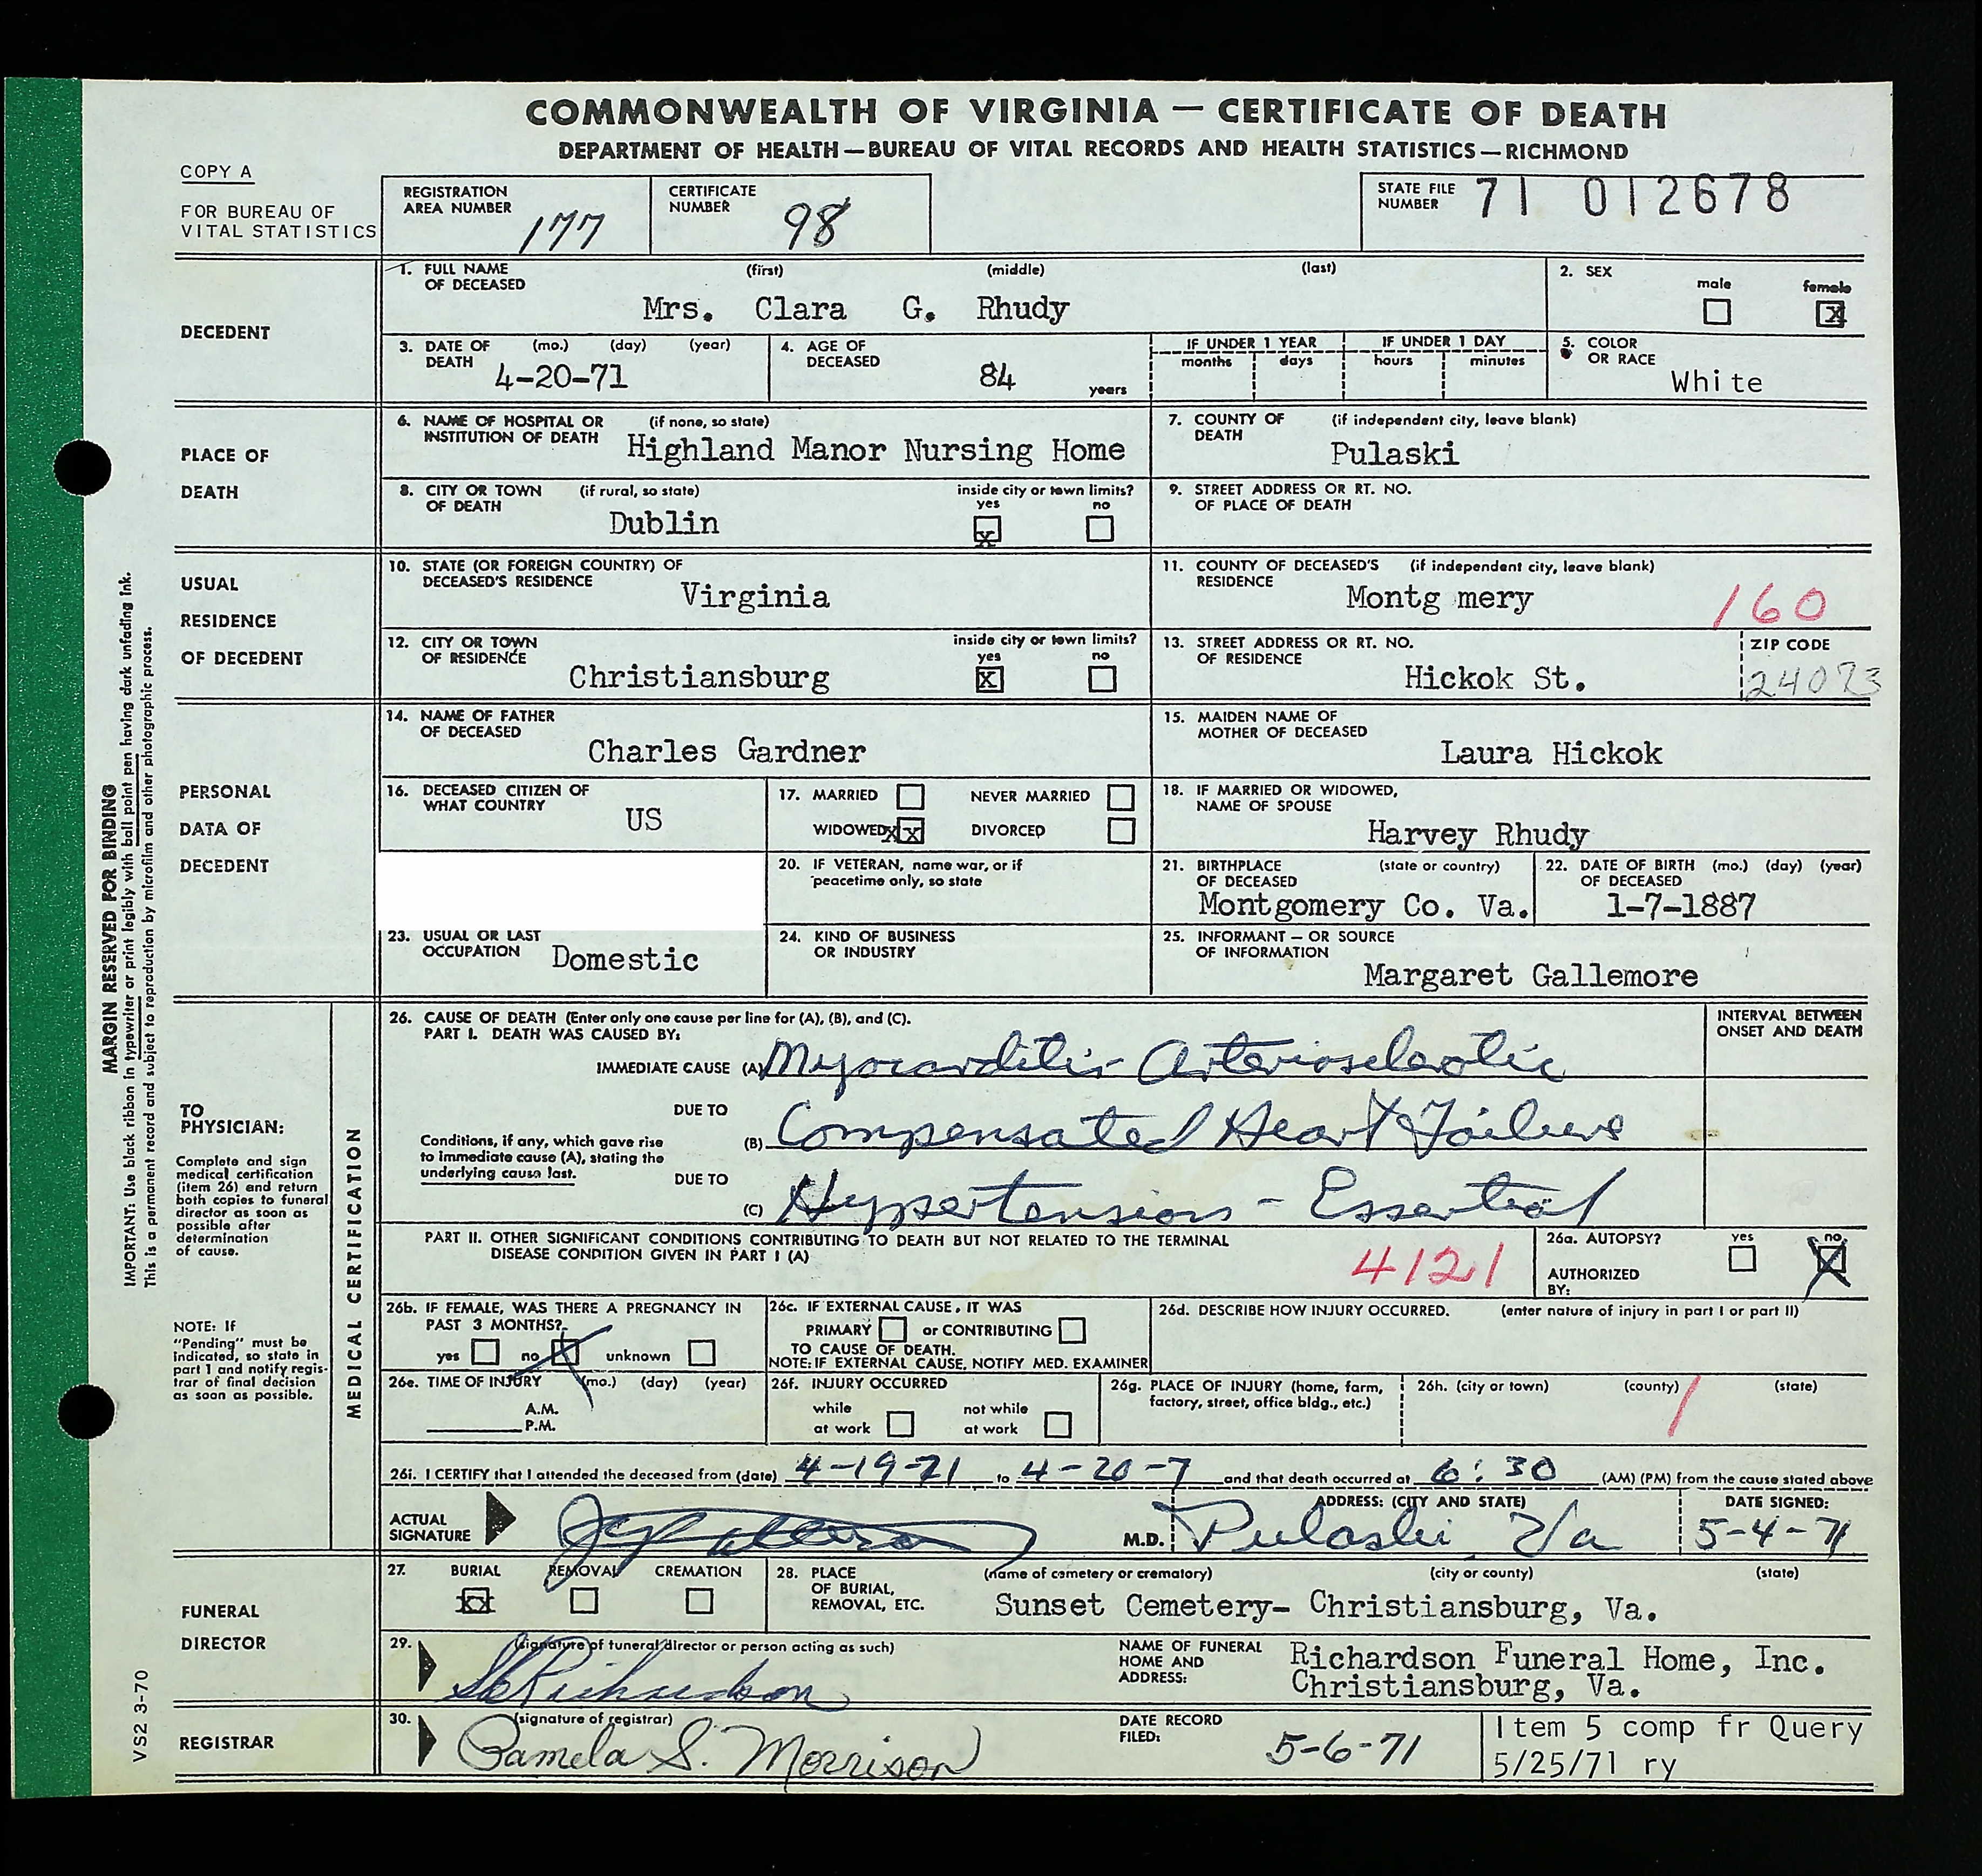 COMMONWEALTH OF VIRGINIA — CERTIFICATE OF DEATH
DEPARTMENT OF HEALTH—BUREAU OF VITAL RECORDS AND HEALTH STATISTICS—RICHMOND
COPY A
FOR BUREAU OF
VITAL STATISTICS
REGISTRATION
AREA NUMBER 177
CERTIFICATE
NUMBER 98
STATE FILE
NUMBER 71 012678
DECEDENT
1. FULL NAME (first) (middle) (last)
OF DECEASED
Mrs. Clara G. Rhudy
2. SEX
male female
X
3. DATE OF (mo.) (day) (year)
DEATH 4-20-71
4. AGE OF
DECEASED 84 years
IF UNDER 1 YEAR
months days
IF UNDER 1 DAY
hours minutes
5. COLOR
OR RACE White
PLACE OF
DEATH
6. NAME OF HOSPITAL OR (if none, so state)
INSTITUTION OF DEATH Highland Manor Nursing Home
7. COUNTY OF (if independent city, leave blank)
DEATH
Pulaski
8. CITY OR TOWN (if rural, so state) inside city or town limits?
OF DEATH yes no
Dublin X
9. STREET ADDRESS OR RT. NO.
OF PLACE OF DEATH
USUAL
RESIDENCE
OF DECEDENT
10. STATE (OR FOREIGN COUNTRY) OF
DECEASED'S RESIDENCE Virginia
11. COUNTY OF DECEASED'S (if independent city, leave blank)
RESIDENCE Montg mery 160
12. CITY OR TOWN inside city or town limits?
OF RESIDENCE yes no
Christiansburg X
13. STREET ADDRESS OR RT. NO.
OF RESIDENCE Hickok St.
ZIP CODE
24073
PERSONAL
DATA OF
DECEDENT
14. NAME OF FATHER
OF DECEASED
Charles Gardner
15. MAIDEN NAME OF
MOTHER OF DECEASED
Laura Hickok
16. DECEASED CITIZEN OF
WHAT COUNTRY US
17. MARRIED NEVER MARRIED
WIDOWED XX DIVORCED
18. IF MARRIED OR WIDOWED,
NAME OF SPOUSE
Harvey Rhudy
20. IF VETERAN, name war, or if
peacetime only, so state
21. BIRTHPLACE (state or country)
OF DECEASED
Montgomery Co. Va.
22. DATE OF BIRTH (mo.) (day) (year)
OF DECEASED
1-7-1887
23. USUAL OR LAST
OCCUPATION Domestic
24. KIND OF BUSINESS
OR INDUSTRY
25. INFORMANT — OR SOURCE
OF INFORMATION
Margaret Gallemore
MARGIN RESERVED FOR BINDING
IMPORTANT: Use black ribbon in typewriter or print legibly with ball point pen having dark unfading ink.
This is a permanent record and subject to reproduction by microfilm and other photographic process.
TO
PHYSICIAN:
Complete and sign
medical certification
(item 26) and return
both copies to funeral
director as soon as
possible after
determination
of cause.
NOTE: If
"Pending" must be
indicated, so state in
part 1 and notify regis-
trar of final decision
as soon as possible.
MEDICAL CERTIFICATION
26. CAUSE OF DEATH (Enter only one cause per line for (A), (B), and (C).
PART I. DEATH WAS CAUSED BY:
INTERVAL BETWEEN
ONSET AND DEATH
IMMEDIATE CAUSE (A) Myocarditis- Arteriosclerotic
DUE TO
(B) Compensated Heart Failure
Conditions, if any, which gave rise
to immediate cause (A), stating the
underlying cause last.
DUE TO
(C) Hypertension - Essential
PART II. OTHER SIGNIFICANT CONDITIONS CONTRIBUTING TO DEATH BUT NOT RELATED TO THE TERMINAL
DISEASE CONDITION GIVEN IN PART I (A)
4121
26a. AUTOPSY? yes no
X
AUTHORIZED
BY:
26b. IF FEMALE, WAS THERE A PREGNANCY IN
PAST 3 MONTHS?
yes no X unknown
26c. IF EXTERNAL CAUSE, IT WAS
PRIMARY or CONTRIBUTING
TO CAUSE OF DEATH.
NOTE: IF EXTERNAL CAUSE, NOTIFY MED. EXAMINER
26d. DESCRIBE HOW INJURY OCCURRED. (enter nature of injury in part I or part II)
26e. TIME OF INJURY (mo.) (day) (year)
A.M.
P.M.
26f. INJURY OCCURRED
while not while
at work at work
26g. PLACE OF INJURY (home, farm,
factory, street, office bldg., etc.)
26h. (city or town) (county) (state)
26i. I CERTIFY that I attended the deceased from (date) 4-19-71 to 4-20-7 and that death occurred at 6:30 (AM) (PM) from the cause stated above
ACTUAL
SIGNATURE M.D.
ADDRESS: (CITY AND STATE)
Pulaski, Va
DATE SIGNED:
5-4-71
FUNERAL
DIRECTOR
27. BURIAL REMOVAL CREMATION
XX
28. PLACE (name of cemetery or crematory) (city or county) (state)
OF BURIAL,
REMOVAL, ETC. Sunset Cemetery- Christiansburg, Va.
29. (signature of funeral director or person acting as such)
Richardson
NAME OF FUNERAL
HOME AND
ADDRESS:
Richardson Funeral Home, Inc.
Christiansburg, Va.
REGISTRAR
30. (signature of registrar)
Pamela S. Morrison
DATE RECORD
FILED: 5-6-71
Item 5 comp fr Query
5/25/71 ry
VS2 3-70